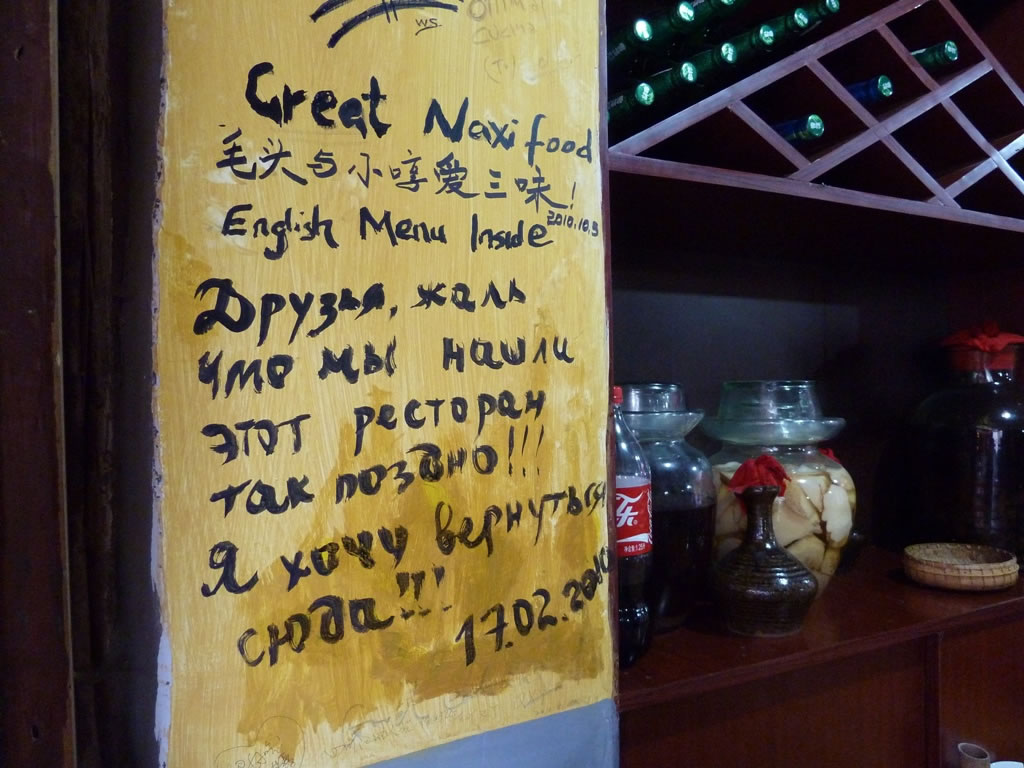 W.S.
Great Naxi food
毛头与小哼爱三味!
English Menu Inside 2010.10.5
Друзья, жаль
что мы нашли
этот ресторан
так поздно!!!
Я хочу вернуться
сюда!!!
17.02.2010